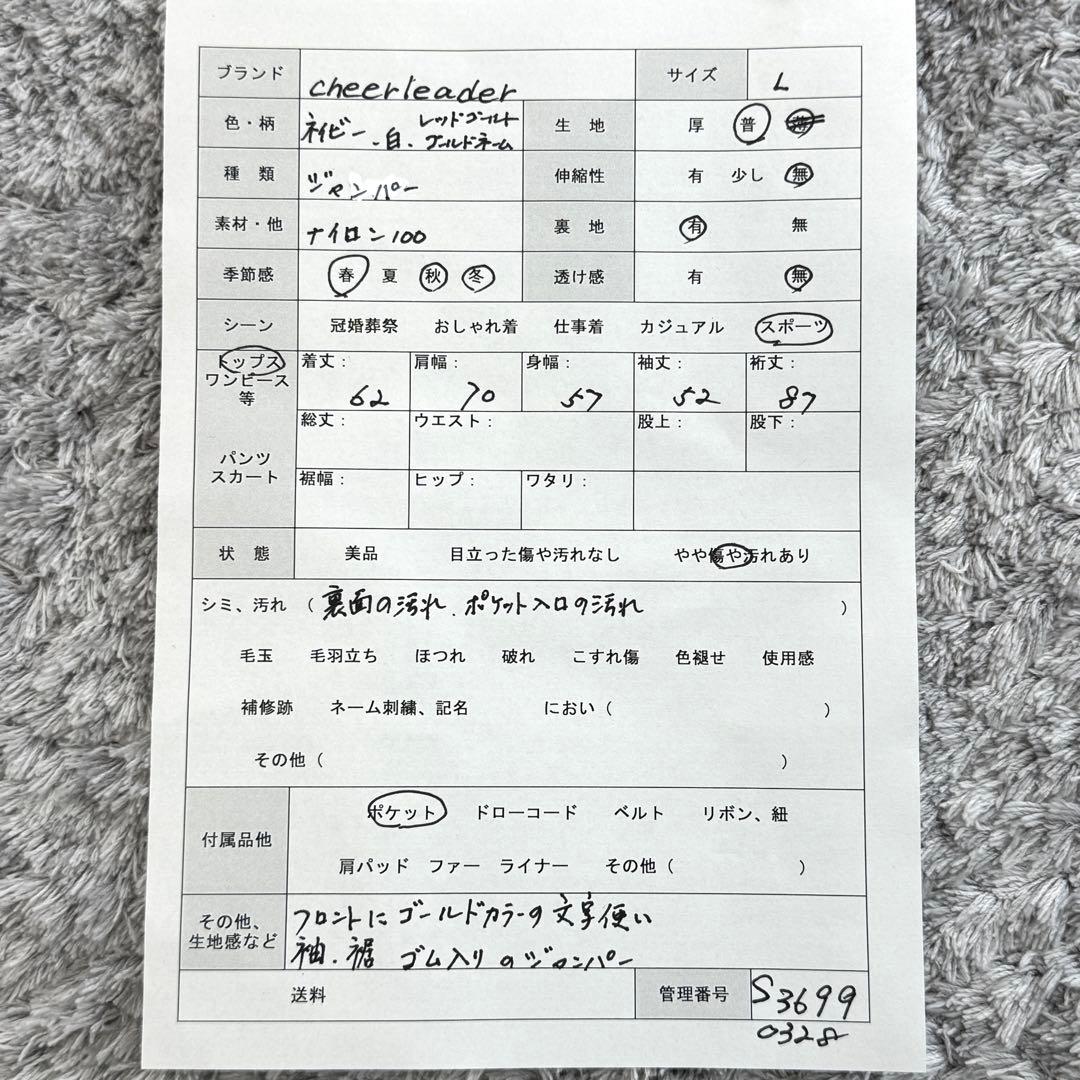 ブランド cheerleader サイズ L
色・柄 ネイビー・白・レッドゴールド ゴールドネーム 生 地 厚 普
種 類 ジャンパー 伸縮性 有 少し 無
素材・他 ナイロン100 裏 地 有 無
季節感 春 夏 秋 冬 透け感 有 無
シーン 冠婚葬祭 おしゃれ着 仕事着 カジュアル スポーツ
トップス ワンピース 等 着丈：62 肩幅：70 身幅：57 袖丈：52 裄丈：87
パンツ スカート 総丈： ウエスト： 股上： 股下：
裾幅： ヒップ： ワタリ：
状 態 美品 目立った傷や汚れなし やや傷や汚れあり
シミ、汚れ （裏面の汚れ、ポケット入口の汚れ ）
毛玉 毛羽立ち ほつれ 破れ こすれ傷 色褪せ 使用感
補修跡 ネーム刺繍、記名 におい（ ）
その他（ ）
付属品他 ポケット ドローコード ベルト リボン、紐
肩パッド ファー ライナー その他（ ）
その他、生地感など フロントにゴールドカラーの文字使い
袖・裾 ゴム入りのジャンパー
送料 管理番号 S3699
0328